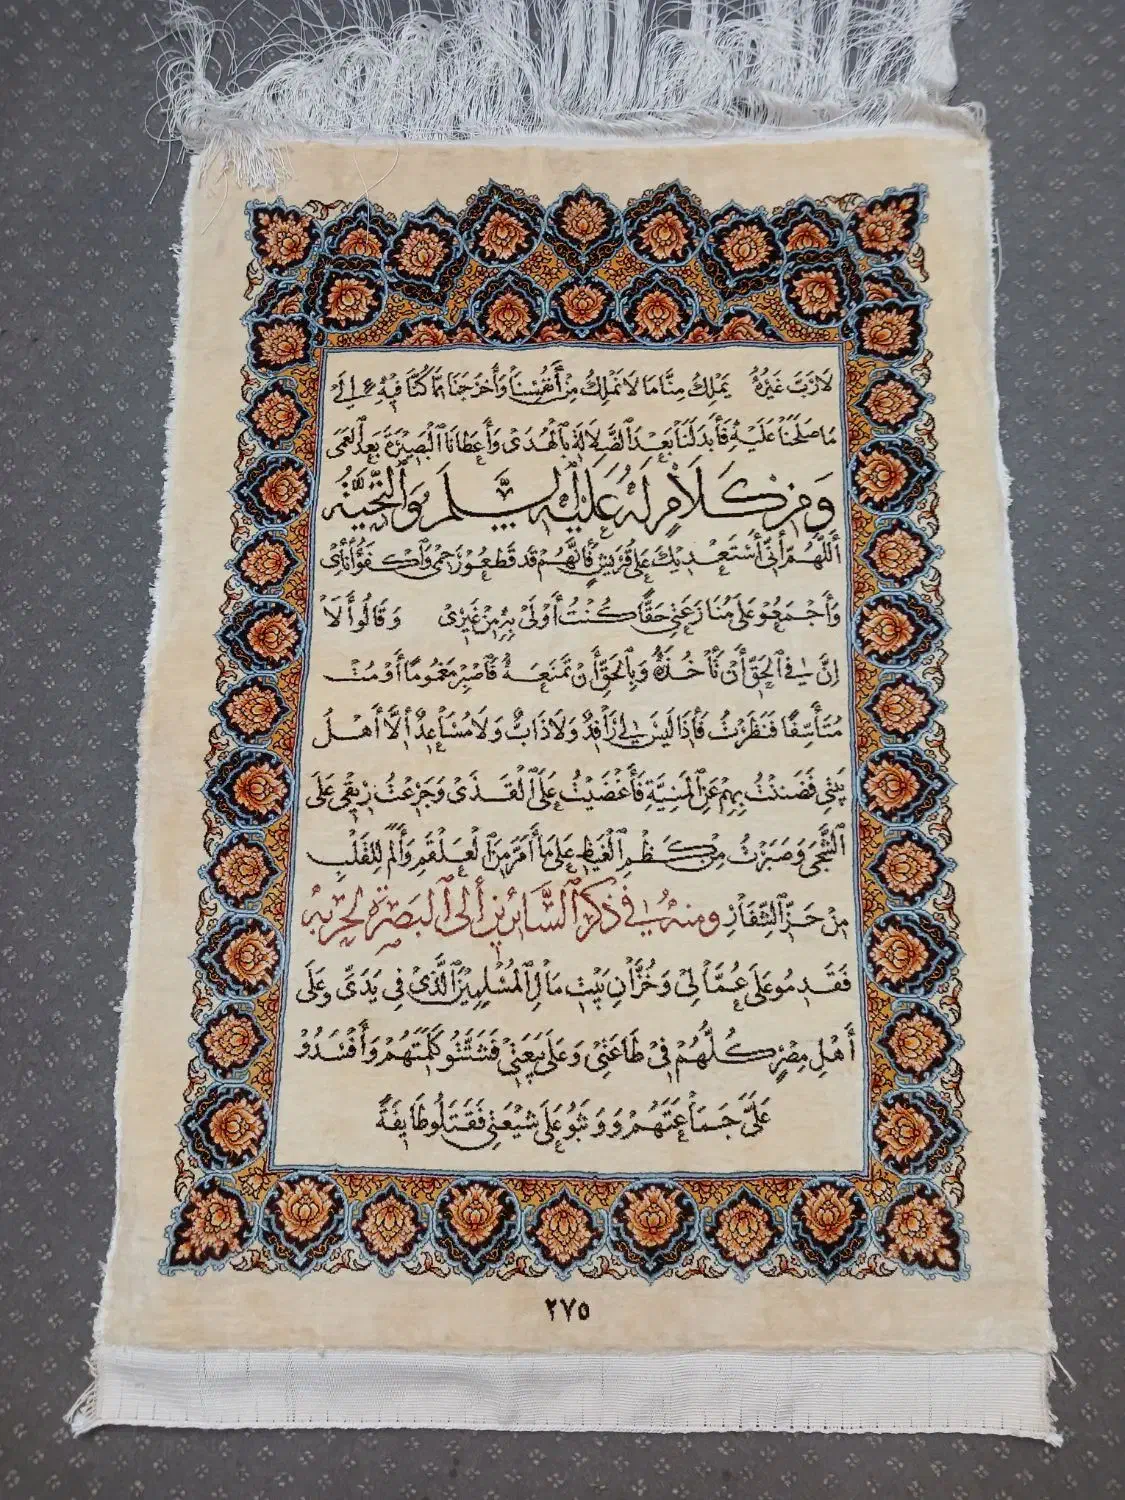 لَا رَبَّ غَيْرُهُ يَمْلِكُ مِنَّا مَا لَا نَمْلِكُ مِنْ أَنْفُسِنَا وَأَخْرَجَنَا مِمَّا كُنَّا فِيهِ إِلَى
مَا صَلَحْنَا عَلَيْهِ فَأَبْدَلَنَا بَعْدَ الضَّلَالَةِ بِالْهُدَىٰ وَأَعْطَانَا الْبَصِيرَةَ بَعْدَ الْعَمَى
وَمِنْ كَلَامٍ لَهُ عَلَيْهِ السَّلَامُ وَالتَّحِيَّةُ
أَللَّهُمَّ أَنِّي أَسْتَعْدِيكَ عَلَى قُرَيْشٍ فَإِنَّهُمْ قَدْ قَطَعُوا رَحِمِي وَأَكْفَؤُا أَنَائِي
وَأَجْمَعُوا عَلَى مُنَازَعَتِي حَقًّا كُنْتُ أَوْلَى بِهِ مِنْ غَيْرِي وَقَالُوا أَلَا
إِنَّ فِي الْحَقِّ أَنْ تَأْخُذَهُ وَبِالْحَقِّ أَنْ تَمْنَعَهُ فَاصْبِرْ مَغْمُومًا أَوْ مُتْ
مُتَأَسِّفًا فَنَظَرْتُ فَأِذَا لَيْسَ لِي رَافِدٌ وَلَا ذَابٌّ وَلَا مُسَاعِدٌ أِلَّا أَهْلَ
بَيْتِي فَضَنَنْتُ بِهِمْ عَنِ الْمَنِيَّةِ فَأَغْضَيْتُ عَلَى الْقَذَىٰ وَجَرَعْتُ رِيقِي عَلَى
الشَّجَىٰ وَصَبَرْتُ مِنْ كَظْمِ الْغَيْظِ عَلَى مَا أَمَرَّ مِنَ الْعَلْقَمِ وَأَلَمَ لِلْقَلْبِ
مِنْ حَزِّ الشِّفَارِ وَمِنْهُ فِي ذِكْرِ السَّائِرِينَ أِلَى الْبَصْرَةِ لِحَرْبِهِ
فَقَدِمُوا عَلَى عُمَّالِي وَخُزَّانِ بَيْتِ مَالِ الْمُسْلِمِينَ الَّذِي فِي يَدَيَّ وَعَلَى
أَهْلِ مِصْرٍ كُلُّهُمْ فِي طَاعَتِي وَعَلَى بَيْعَتِي فَشَتَّتُوا كَلِمَتَهُمْ وَأَفْسَدُوا
عَلَيَّ جَمَاعَتَهُمْ وَوَثَبُوا عَلَى شِيعَتِي فَقَتَلُوا طَايِفَةً
٢٧٥